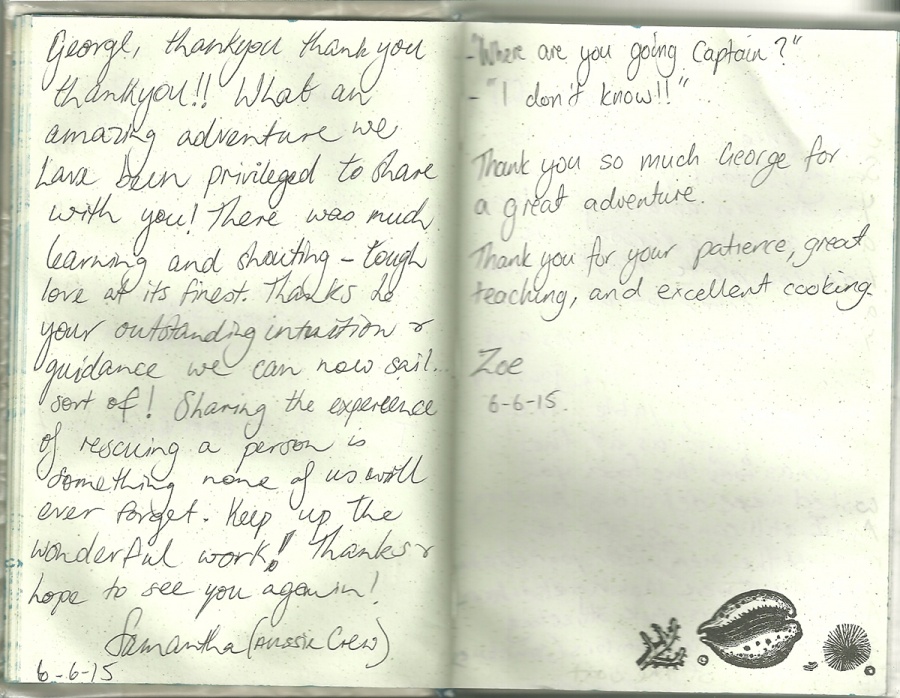 George, thankyou thank you
thankyou!! What an
amazing adventure we
have been privileged to share
with you! There was much
learning and shouting - tough
love at its finest. Thanks to
your outstanding intuition &
guidance we can now sail...
sort of! Sharing the experience
of rescuing a person is
something none of us will
ever forget. Keep up the
wonderful work! Thanks &
hope to see you again!
Samantha (Aussie Crew)
6-6-15
-"Where are you going Captain?"
-"I don't know!!"
Thank you so much George for
a great adventure.
Thank you for your patience, great
teaching, and excellent cooking.
Zoe
6-6-15.